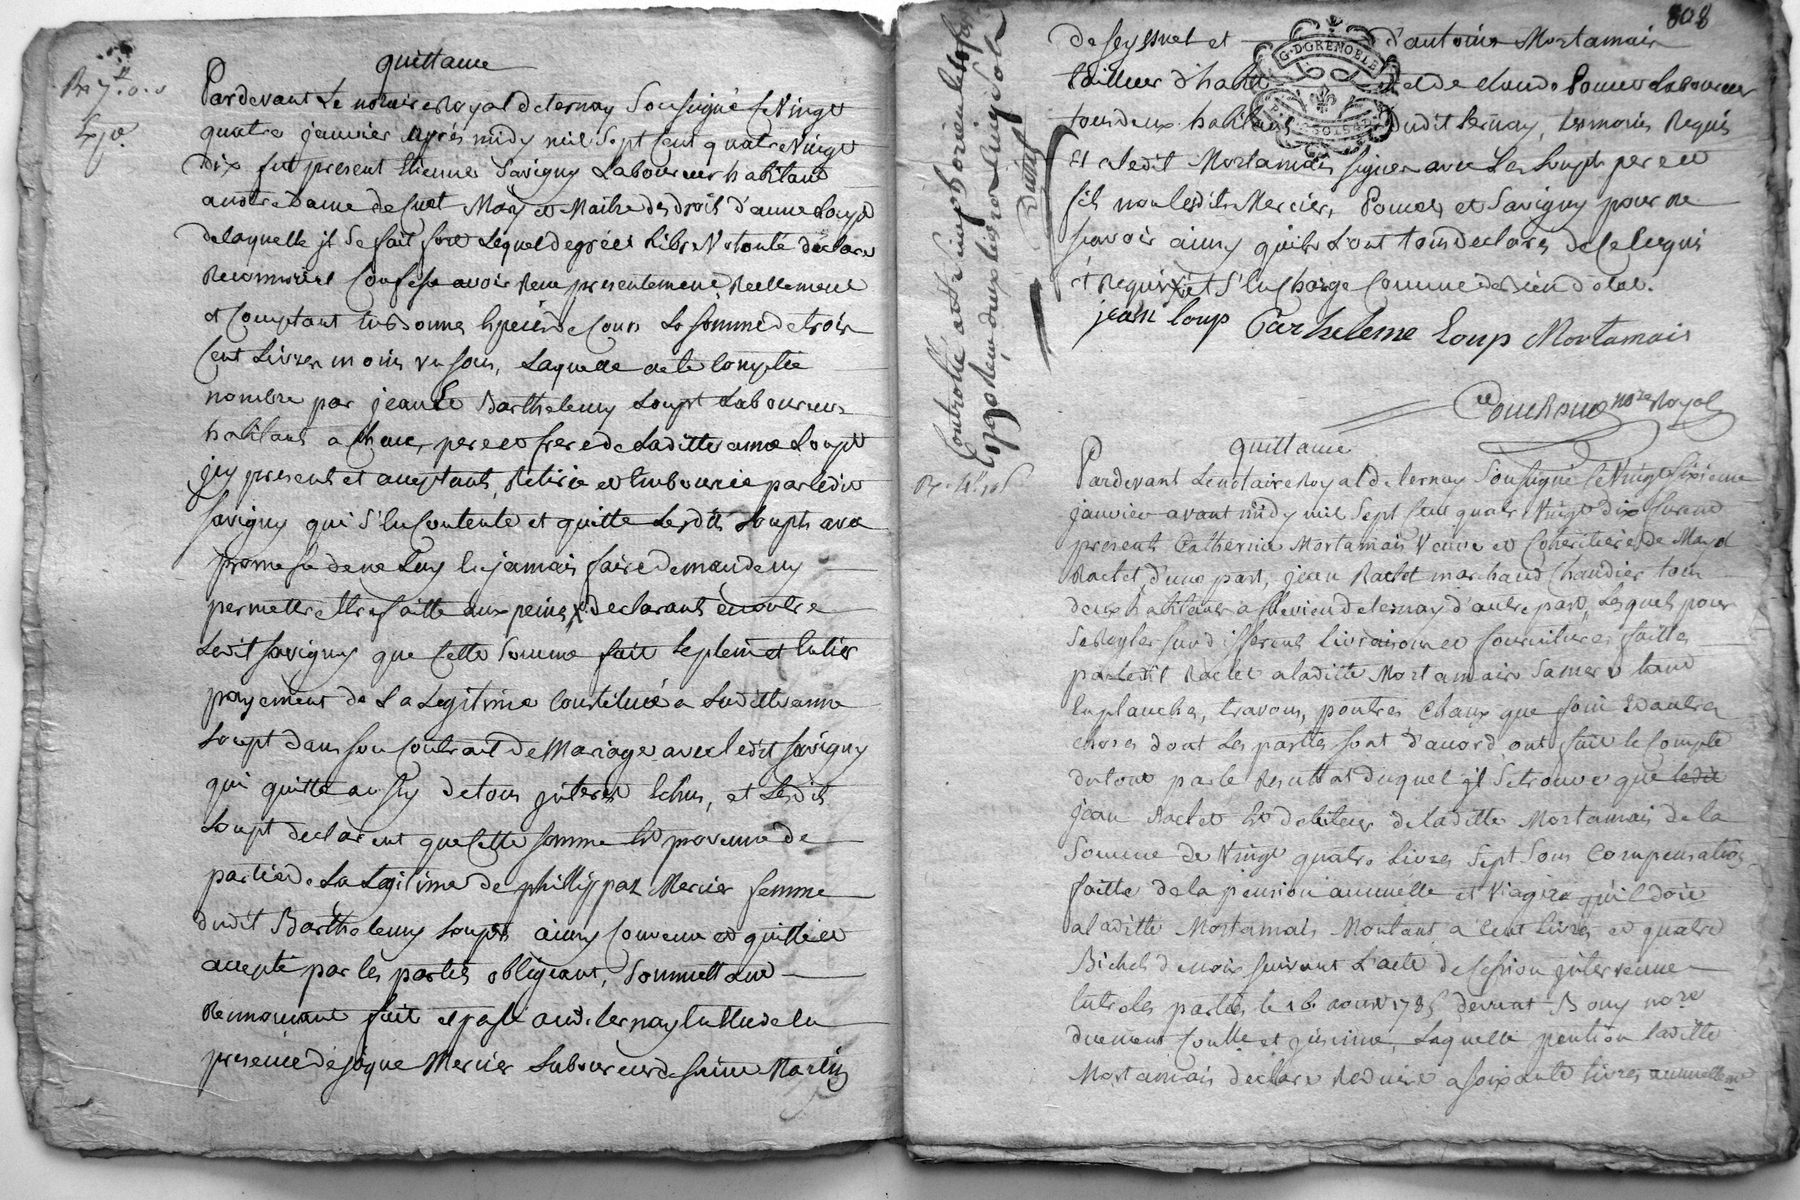 quittance
Pardevant Le notaire Royal de ternay Soussigné le Vingt
quatre janvier après midy mil Sept Cent quatre Vingt
dix fut present Etienne Savigny Laboureur habitant
Mary et Maitre des droits d'anne Loup
de laquelle jl Se fait fort Lequel de gré et libre Volonté declare
Confesse avoir Reçu presentement Reellement
et Comptant en bonnes Especes de Cours La somme de trois
Cent Livres moins un sous, Laquelle a eté Comptée
nombrée par jean et Barthelemy Loupt Laboureurs
habitants a pere et frere de Laditte anne Loupt
jcy presents et acceptants, Retirée et Emboursée par ledit
Savigny qui S'En Contente et quitte Lesdits Loupts avec
promesse de ne Leur En jamais faire demande ny
permettre Etre faitte aux peines declarant en outre
Ledit Savigny que Cette Somme fait le plein et Entier
payement de La Legitime Constituée a Laditte anne
Loupt dans son Contrat de Mariage avec ledit Savigny
qui quitte aussy de tous jnterets Echus, et Lesdits
Loupt declarent que Cette somme Est provenue de
partie de La Legitime de phillippaz Mercier femme
dudit Barthelemy Loupt ainsy Convenu et quittée
accepté par les parties obligeant, Soummettant
Renonceant fait et passé audit ternay Etude En
presence de jaque Mercier Laboureur de Saint Martin
808
de seyssuel et d'antoine Mortamais
tailleur d'habit et de claude Pomet Laboureur
tous deux habitants dudit ternay, temoins Requis
Et Ledit Mortamais signé avec Les Loupts pere et
fils non lesdits Mercier, Pomet et Savigny pour ne
scavoir ainsy qu'ils L'ont tous declarés de Ce Enquis
et Requis
G. D GRENOBLE
jean loup Bartheleme Loup Mortamais
nore Royal
quittance
Pardevant Le notaire Royal de ternay Soussigné le Vingt Sixieme
janvier avant midy mil Sept Cent quatre Vingt dix furent
presents Catherine Mortamais Veuve et Coheritiere de
Raclet d'une part, jean Raclet marchand Chaudier tous
deux habitants a de ternay d'autre part, Lesquels pour
Se Regler sur differents livraisons et fournitures faittes
par ledit Raclet a laditte Mortamais Sa mere tant
En planches, travons, poutres Chaux que foin Et autres
choses dont Les parties sont d'accord ont fait le Compte
du tout par le Resultat duquel jl Se trouve que ledit
jean Raclet Est debiteur de laditte Mortamais de la
Somme de Vingt quatre Livres Sept Sous Compensation
faitte de la pension annuelle et Viagere qu'il doit
a laditte Mortamais Montant a Cent Livres et quatre
Bichets de noix suivant L'acte de Cession jntervenue
Entre les parties le 16 aoust 1785 devant Bony nore
duement Conllé et jnsinué, Laquelle pention laditte
Mortamais declare Reduire a soixante livres annuellemt